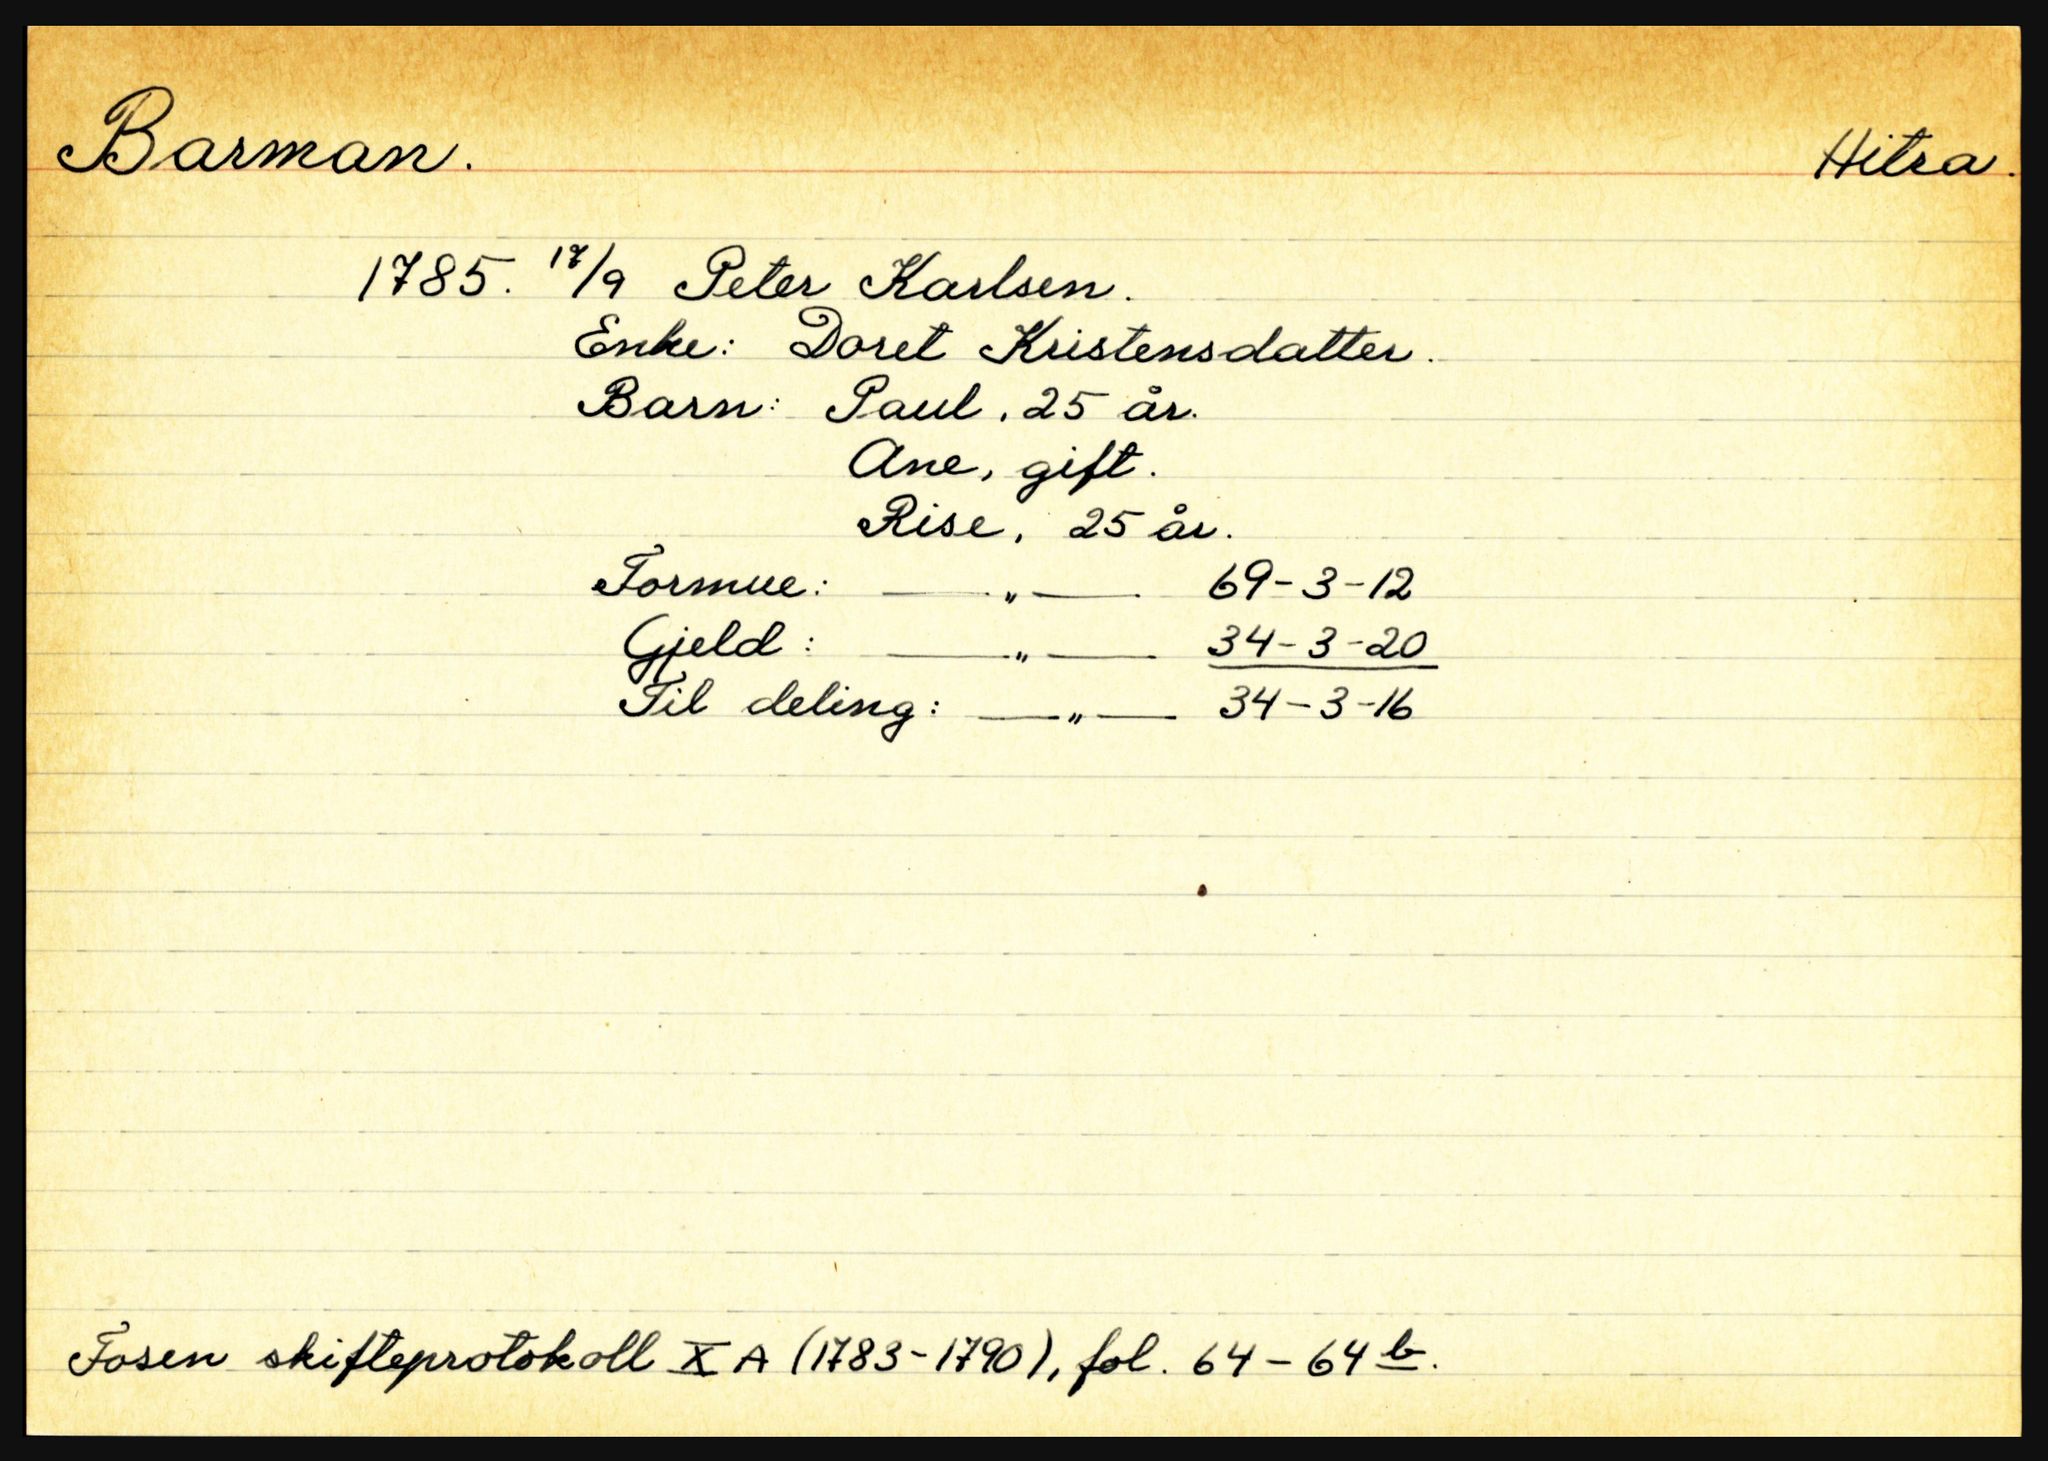 Barman. Hitra.
1785. 17/9 Peter Karlsen.
Enke: Doret Kristensdatter.
Barn: Paul, 25 år.
Ane, gift.
Rise, 25 år.
Formue: —„— 69-3-12
Gjeld: —„— 34-3-20
Til deling: —„— 34-3-16
Fosen skifteprotokoll X A (1783-1790), fol. 64-64 b.